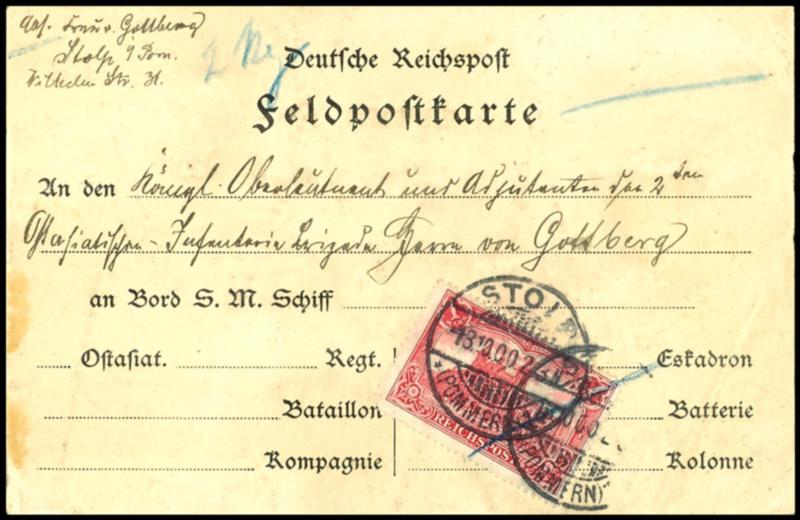 Abs. Frau v. Gottberg
Stolp i/Pom.
Wilhelm Str. 31.
2 Mk
Deutsche Reichspost
Feldpostkarte
An den Königl. Oberleutnant und Adjutanten der 2ten
Ostasiatischen-Infanterie Brigade Herrn von Gottberg
an Bord S. M. Schiff
Ostasiat. Regt. Eskadron
Bataillon Batterie
Kompagnie Kolonne
STOLP
13.10.00.2
(POMMERN)
REICHSPOST
(POMMERN)